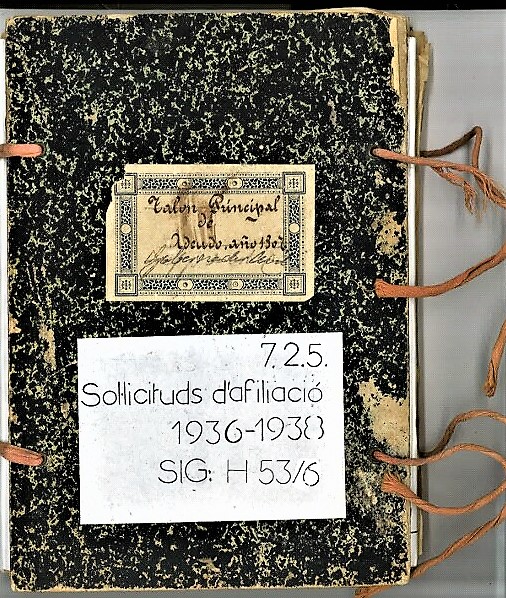 Talon Principal
de
Adeudo, año 180
7.2.5.
Sol·licituds d'afiliació
1936-1938
SIG: H 53/6